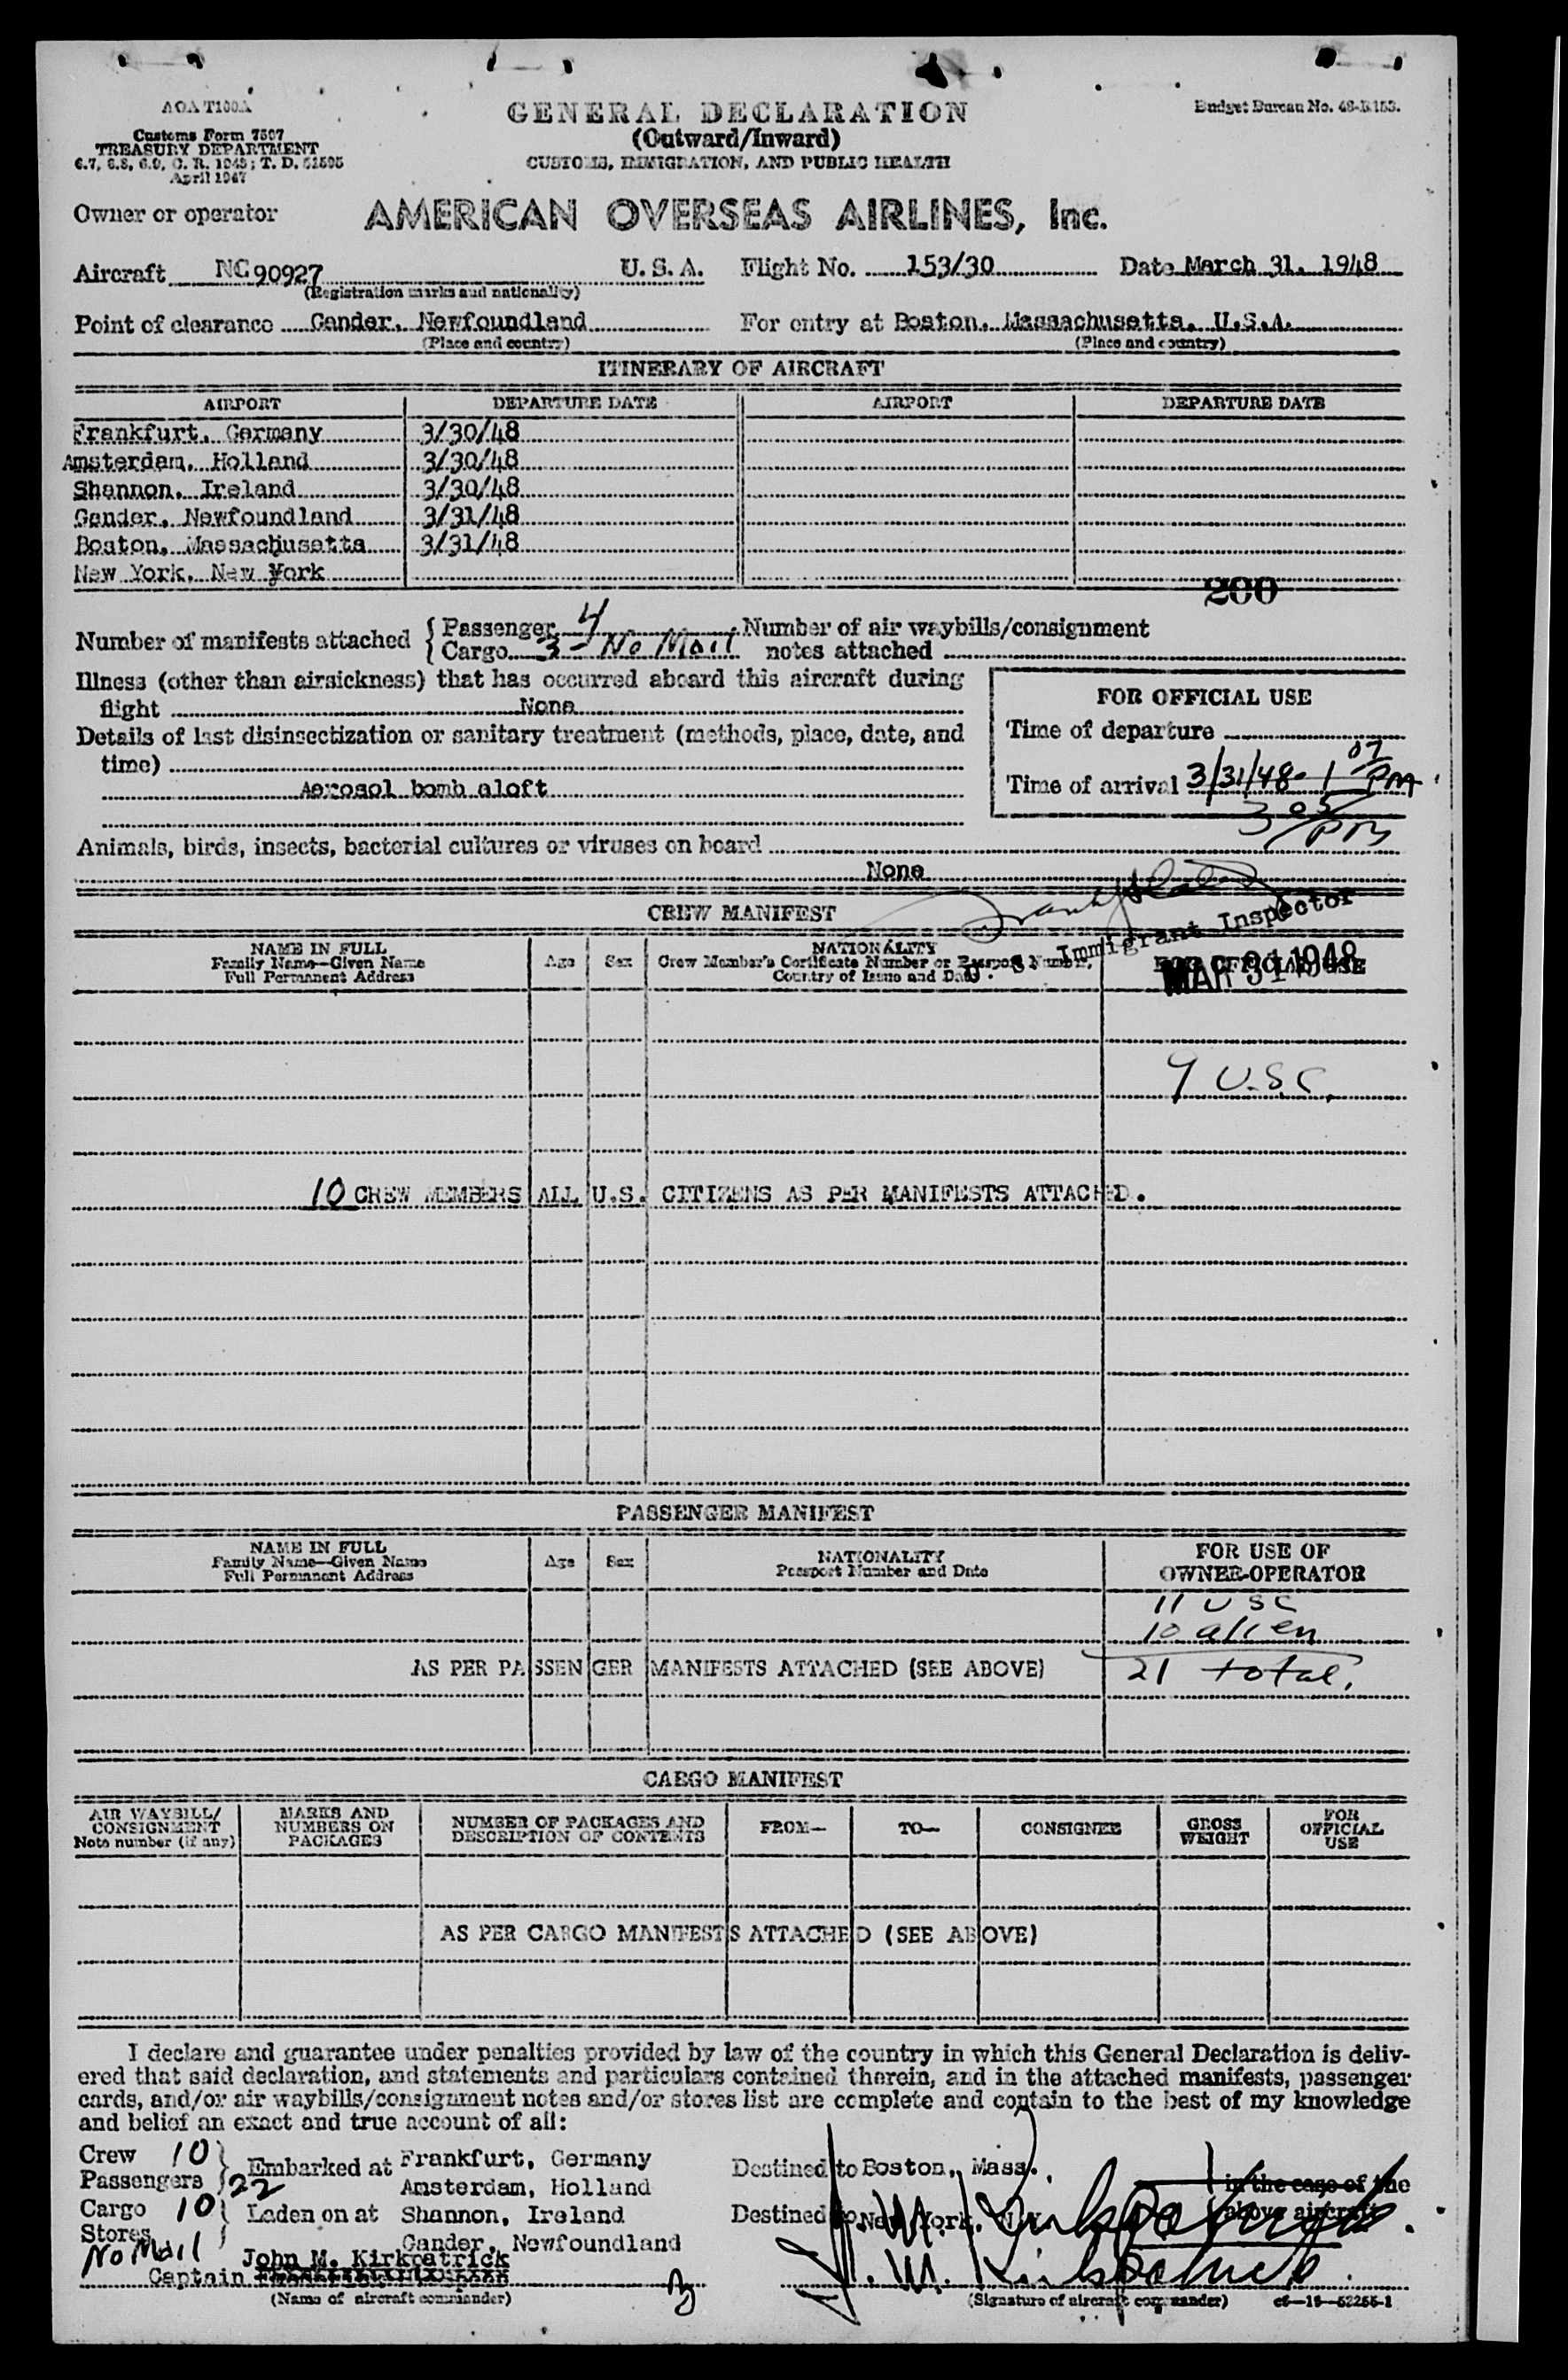 AOA T100A
Customs Form 7507
TREASURY DEPARTMENT
April 1947
Budget Bureau No.
GENERAL DECLARATION
(Outward/Inward)
CUSTOMS, IMMIGRATION, AND PUBLIC HEALTH
Owner or operator AMERICAN OVERSEAS AIRLINES, Inc.
Aircraft NC90927 U.S.A. Flight No. 153/30 Date March 31, 1948
(Registration marks and nationality)
Point of clearance Gander, Newfoundland For entry at Boston, Massachusetts, U.S.A.
(Place and country) (Place and country)
ITINERARY OF AIRCRAFT
AIRPORT DEPARTURE DATE AIRPORT DEPARTURE DATE
Frankfurt, Germany 3/30/48
Amsterdam, Holland 3/30/48
Shannon, Ireland 3/30/48
Gander, Newfoundland 3/31/48
Boston, Massachusetts 3/31/48
New York, New York
200
Number of manifests attached { Passenger 4 Number of air waybills/consignment
Cargo 3 - No Mail notes attached
Illness (other than airsickness) that has occurred aboard this aircraft during
flight None
Details of last disinsectization or sanitary treatment (methods, place, date, and
time)
Aerosol bomb aloft
FOR OFFICIAL USE
Time of departure
Time of arrival 3/31/48 - 1 07 PM
3 05 PM
Animals, birds, insects, bacterial cultures or viruses on board
None
CREW MANIFEST
U. S. Immigrant Inspector
MAR 31 1948
NAME IN FULL
Family Name—Given Name
Full Permanent Address
Age Sex
NATIONALITY
Crew Member's Certificate Number or Passport Number,
Country of Issue and Date
FOR OFFICIAL USE
9 U.S.C.
10 CREW MEMBERS ALL U.S. CITIZENS AS PER MANIFESTS ATTACHED.
PASSENGER MANIFEST
NAME IN FULL
Family Name—Given Name
Full Permanent Address
Age Sex
NATIONALITY
Passport Number and Date
FOR USE OF
OWNER-OPERATOR
11 USC
10 alien
AS PER PASSENGER MANIFESTS ATTACHED (SEE ABOVE) 21 total.
CARGO MANIFEST
AIR WAYBILL/
CONSIGNMENT
Note number (if any)
MARKS AND
NUMBERS ON
PACKAGES
NUMBER OF PACKAGES AND
DESCRIPTION OF CONTENTS
FROM— TO— CONSIGNEE
GROSS
WEIGHT
FOR
OFFICIAL
USE
AS PER CARGO MANIFESTS ATTACHED (SEE ABOVE)
I declare and guarantee under penalties provided by law of the country in which this General Declaration is deliv-
ered that said declaration, and statements and particulars contained therein, and in the attached manifests, passenger
cards, and/or air waybills/consignment notes and/or stores list are complete and contain to the best of my knowledge
and belief an exact and true account of all:
Crew 10 } Embarked at Frankfurt, Germany Destined to Boston, Mass. in the case of the
Passengers 22 Amsterdam, Holland above aircraft
Cargo 10 } Laden on at Shannon, Ireland Destined to New York, N.Y.
Stores Gander, Newfoundland
No Mail John M. Kirkpatrick J. M. Kirkpatrick
Captain J. M. Kirkpatrick
(Name of aircraft commander) (Signature of aircraft commander)